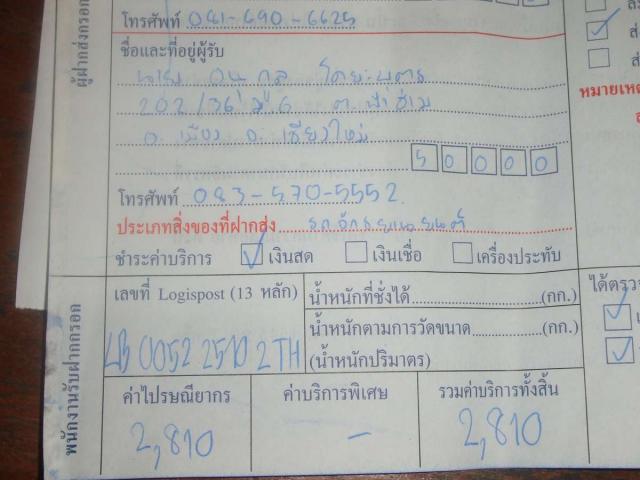 โทรศัพท์ 081-690-6625
ผู้ฝากส่งกรอก
ชื่อและที่อยู่ผู้รับ
นาย อนุกูล
202/36 ม.6 ต. ป่าซ่าง
อ. เมือง จ. เชียงใหม่
50000
โทรศัพท์ 083-570-5552
ประเภทสิ่งของที่ฝากส่ง รถจักรยานยนต์
ชำระค่าบริการ เงินสด เงินเชื่อ เครื่องประทับ
หมายเหต
พนักงานรับฝากกรอก
เลขที่ Logispost (13 หลัก)
น้ำหนักที่ชั่งได้ (กก.)
น้ำหนักตามการวัดขนาด (กก.)
(น้ำหนักปริมาตร)
ได้ตรว
ค่าไปรษณียากร ค่าบริการพิเศษ รวมค่าบริการทั้งสิ้น
2,810 - 2,810